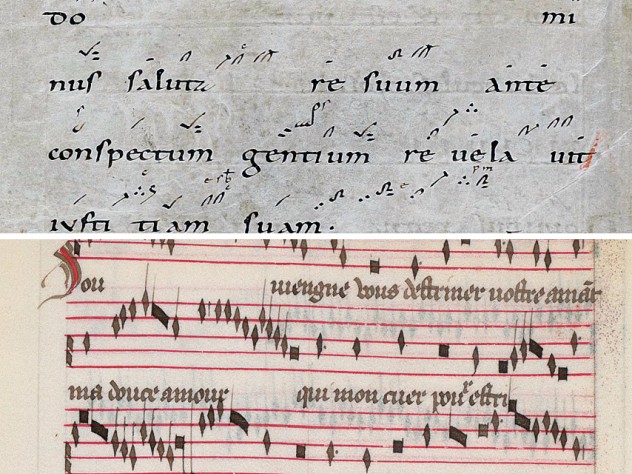 DO mi
nus saluta re suum ante
conspectum gentium re uela uit
iusti tiam suam.
Sou uiengne vous destriner vostre amāt
ma douce amour qui mon cuer estri